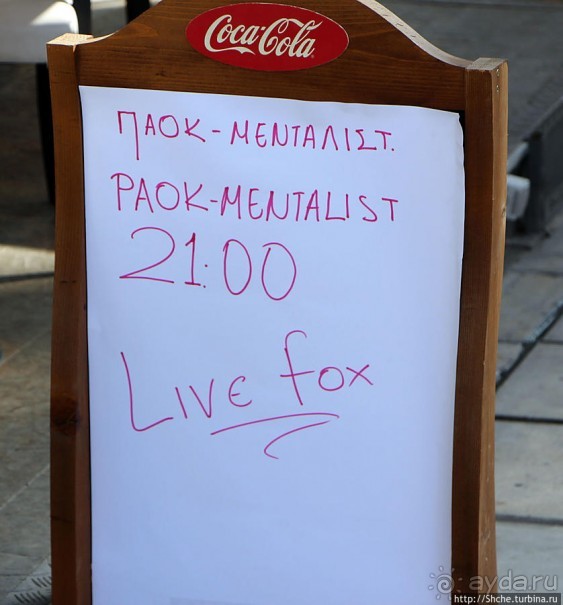 Coca-Cola
ΠΑΟΚ-ΜΕΝΤΑΛΙΣΤ.
PAOK-MENTALIST
21:00
LIVE fox
ayda.ru
http://Shche.turbina.ru